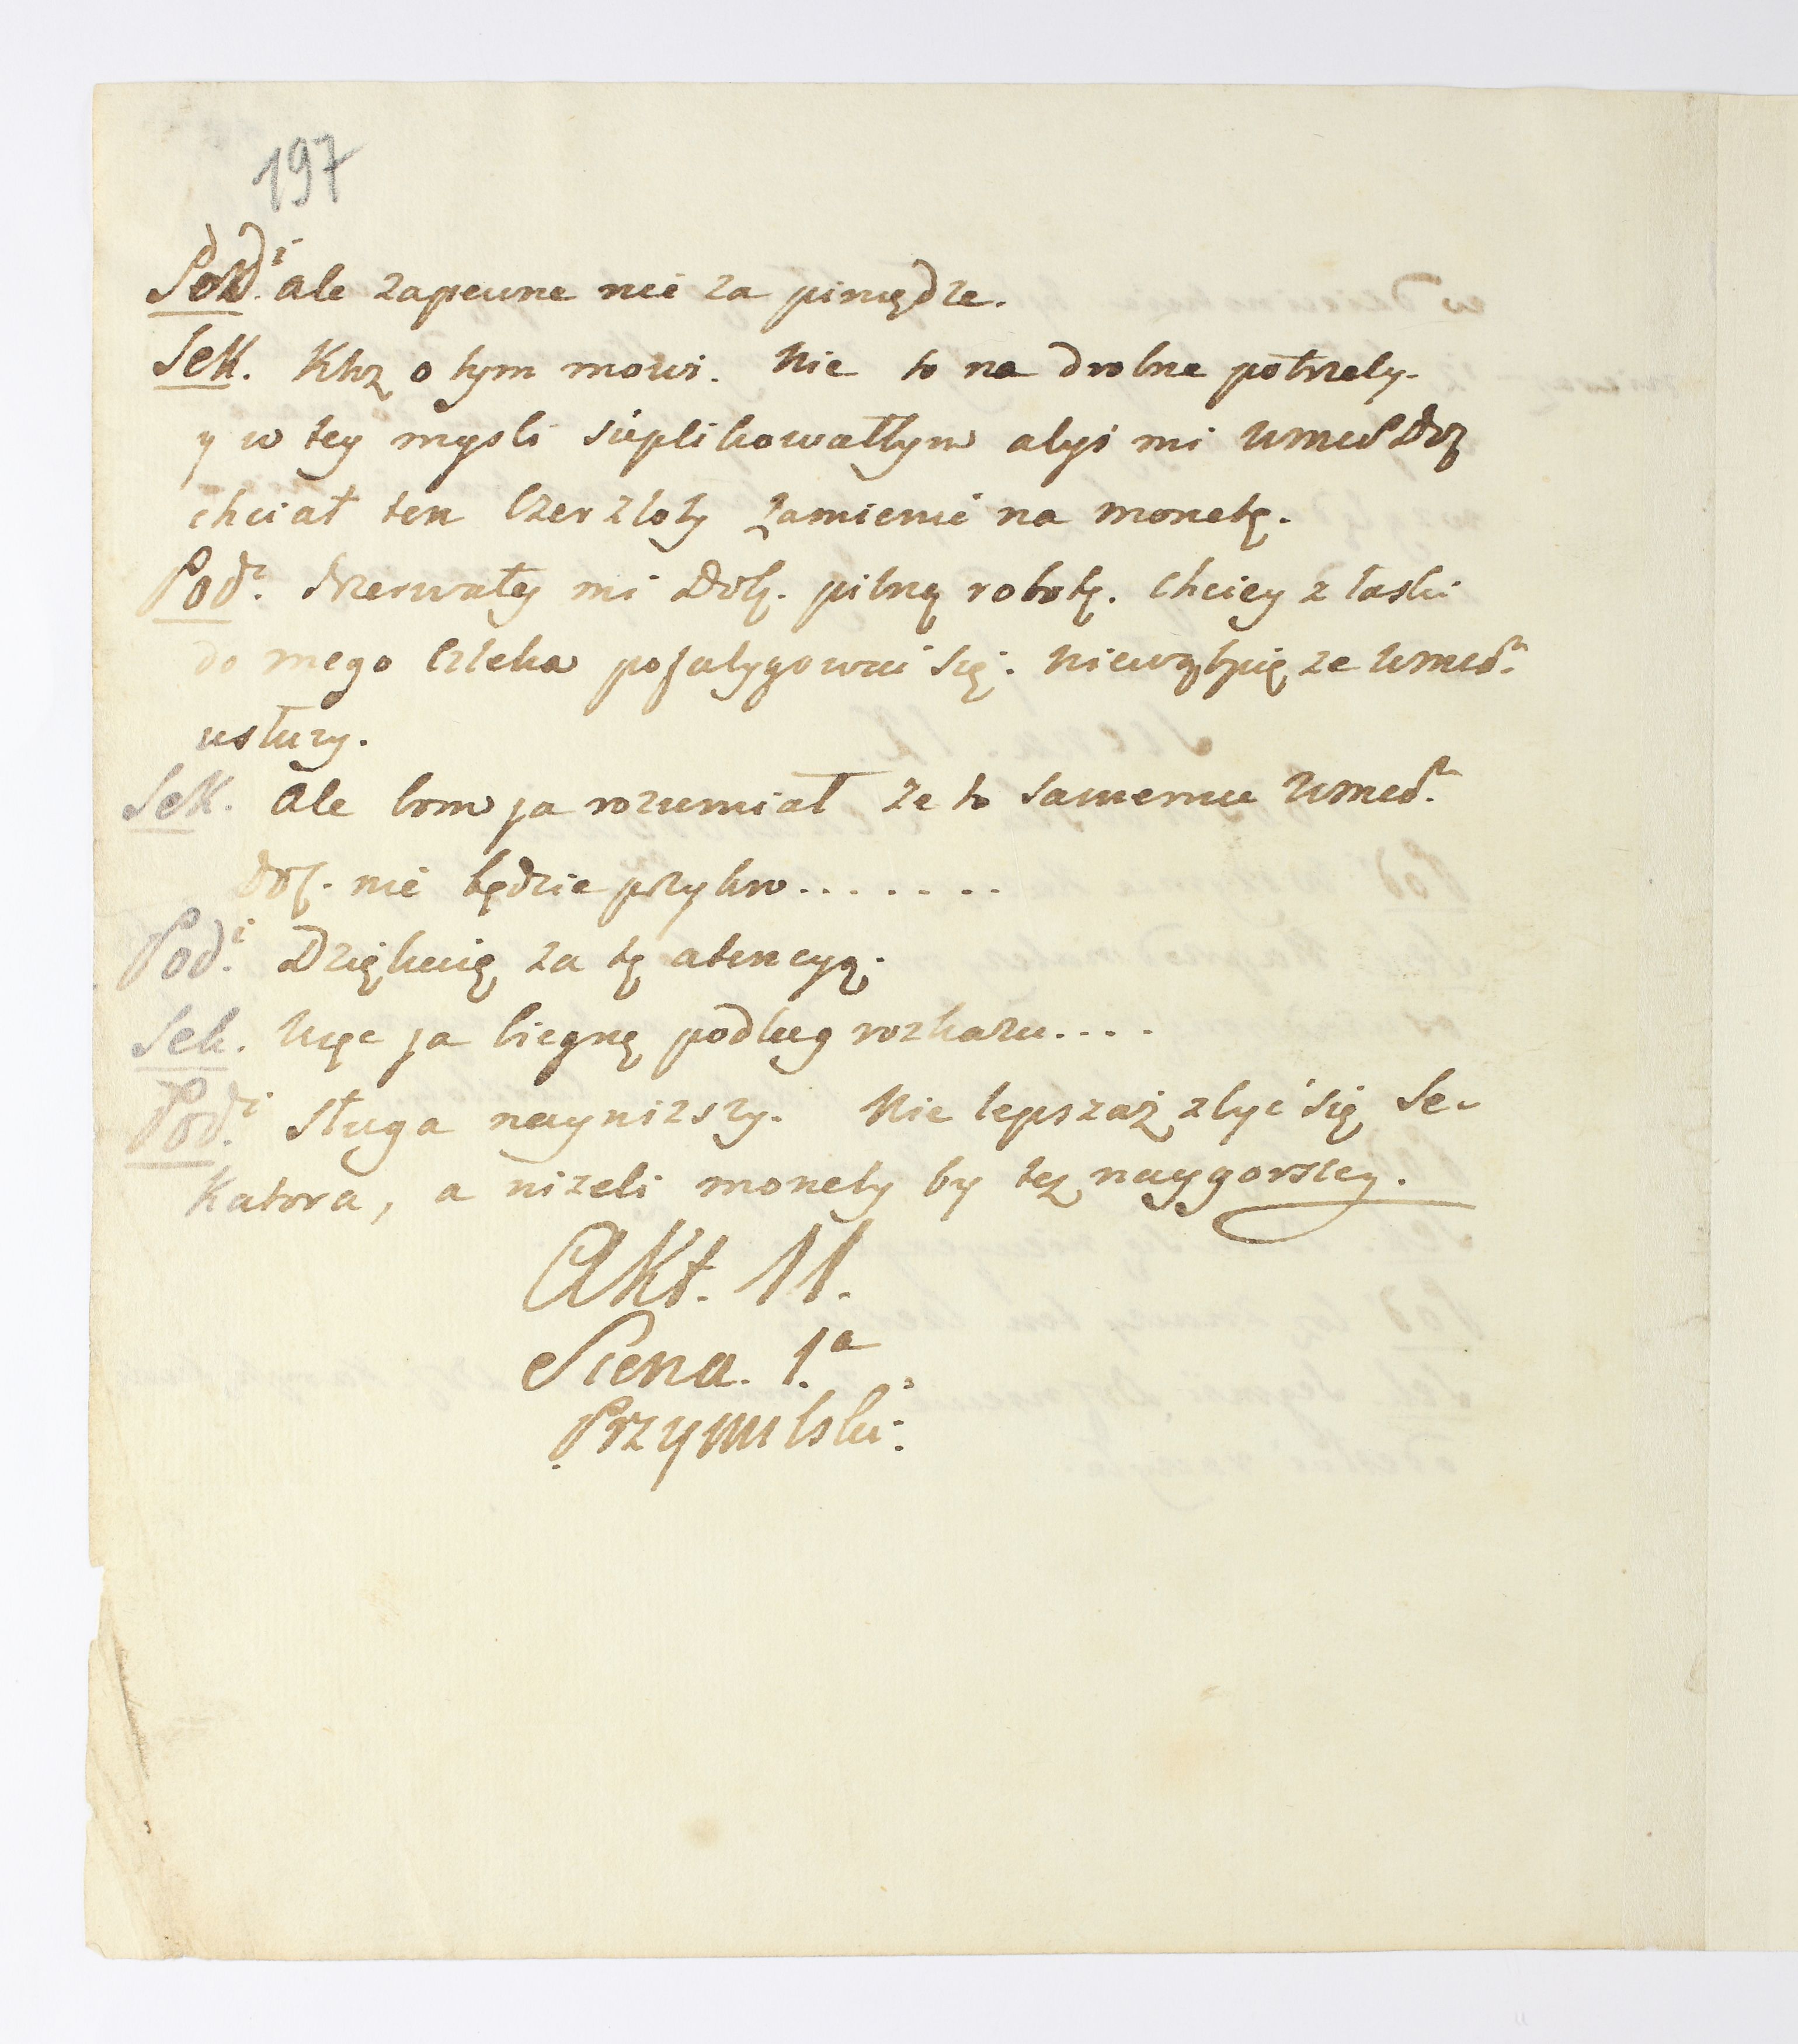 197
Pod.i ale zapewne nie za piniędze.
Sek. Któz o tym mowi. Nie to na drobne potrzeby
y w tey mysli suplikowałbym abys mi
chciał ten Czer złoty zamienić na monetę.
Pod.i mi pilną robotę. Chciey z łaski
do mego Czleka pofatygować się. niewątpię ze
usłuzy.
Sek. Ale bom ja rozumiał ze to samemu
nie będzie przykro.......
Pod.i Dziękuię za tę atencyą.
Sek. Więc ja biegnę podług rozkazu....
Pod.i Sługa naynizszy. Nie lepszaż zbyć się Se-
katora, a nizeli monety by tez naygorszey.
Akt. II.
Scena. 1.a